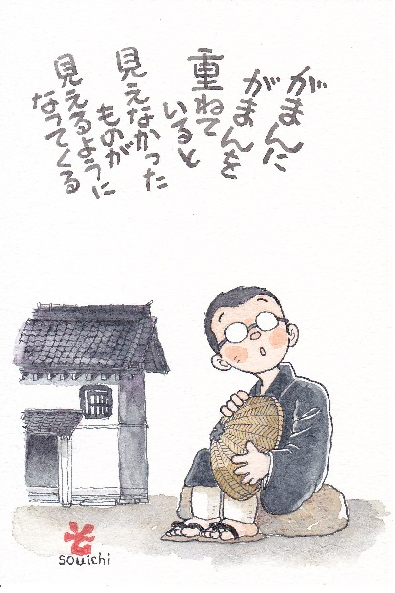 がまんに
がまんを
重ねて
いると
見えなかった
ものが
見えるように
なってくる
そ
souichi